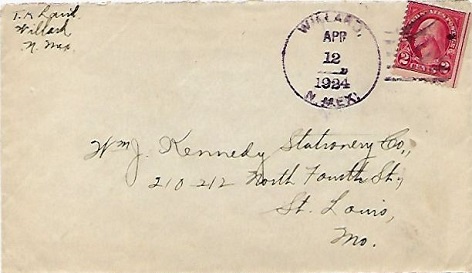 Laird
Willard
N. Mex.
WILLARD,
APR
12
1924
N. MEX.
2 CENTS 2
Wm J. Kennedy Stationery Co.,
210 212 North Fourth St.,
St. Louis,
Mo.